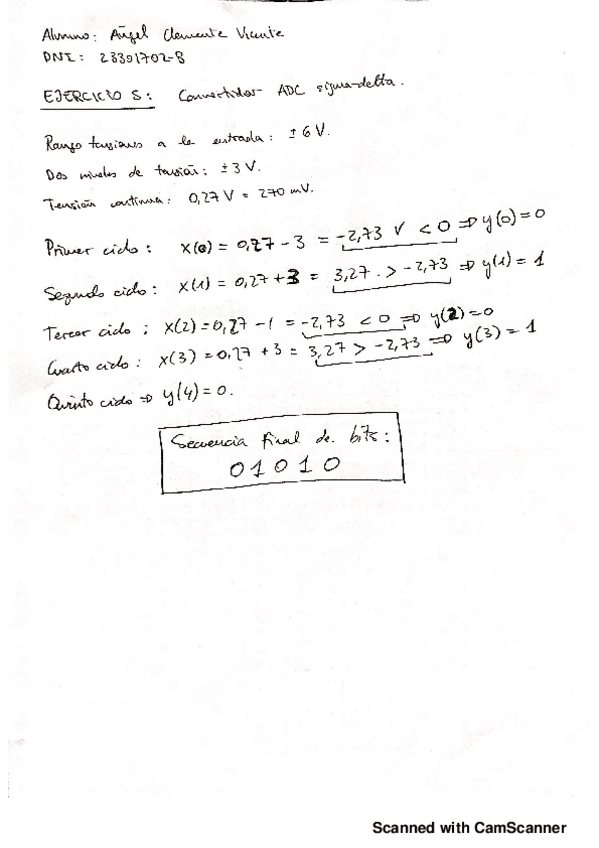 Alumno: Ángel Clemente Vicente
DNI: 23301702-B
EJERCICIO 5: Convertidor ADC sigma-delta.
Rango tensiones a la entrada: ±6V.
Dos niveles de tensión: ±3V.
Tensión continua: 0,27V = 270 mV.
Primer ciclo: x(0) = 0,27 - 3 = -2,73 V < 0 ⇒ y(0)=0
Segundo ciclo: x(1) = 0,27 + 3 = 3,27. > -2,73 ⇒ y(1) = 1
Tercer ciclo: x(2) = 0,27 - 1 = -2,73 < 0 ⇒ y(2)=0
Cuarto ciclo: x(3) = 0,27 + 3 = 3,27 > -2,73 ⇒ y(3) = 1
Quinto ciclo ⇒ y(4) = 0.
Secuencia final de bits:
01010
Scanned with CamScanner